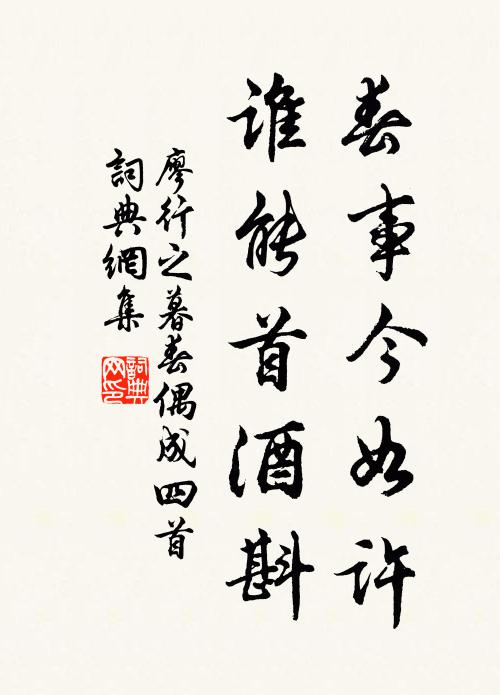 春事今如許
誰能首酒斟
廖行之暮春偶成四首
詞典網集
詞典网印